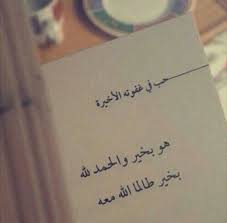 حب في غفوته الأخيرة
هو بخير والحمد لله
بخير طالما الله معه